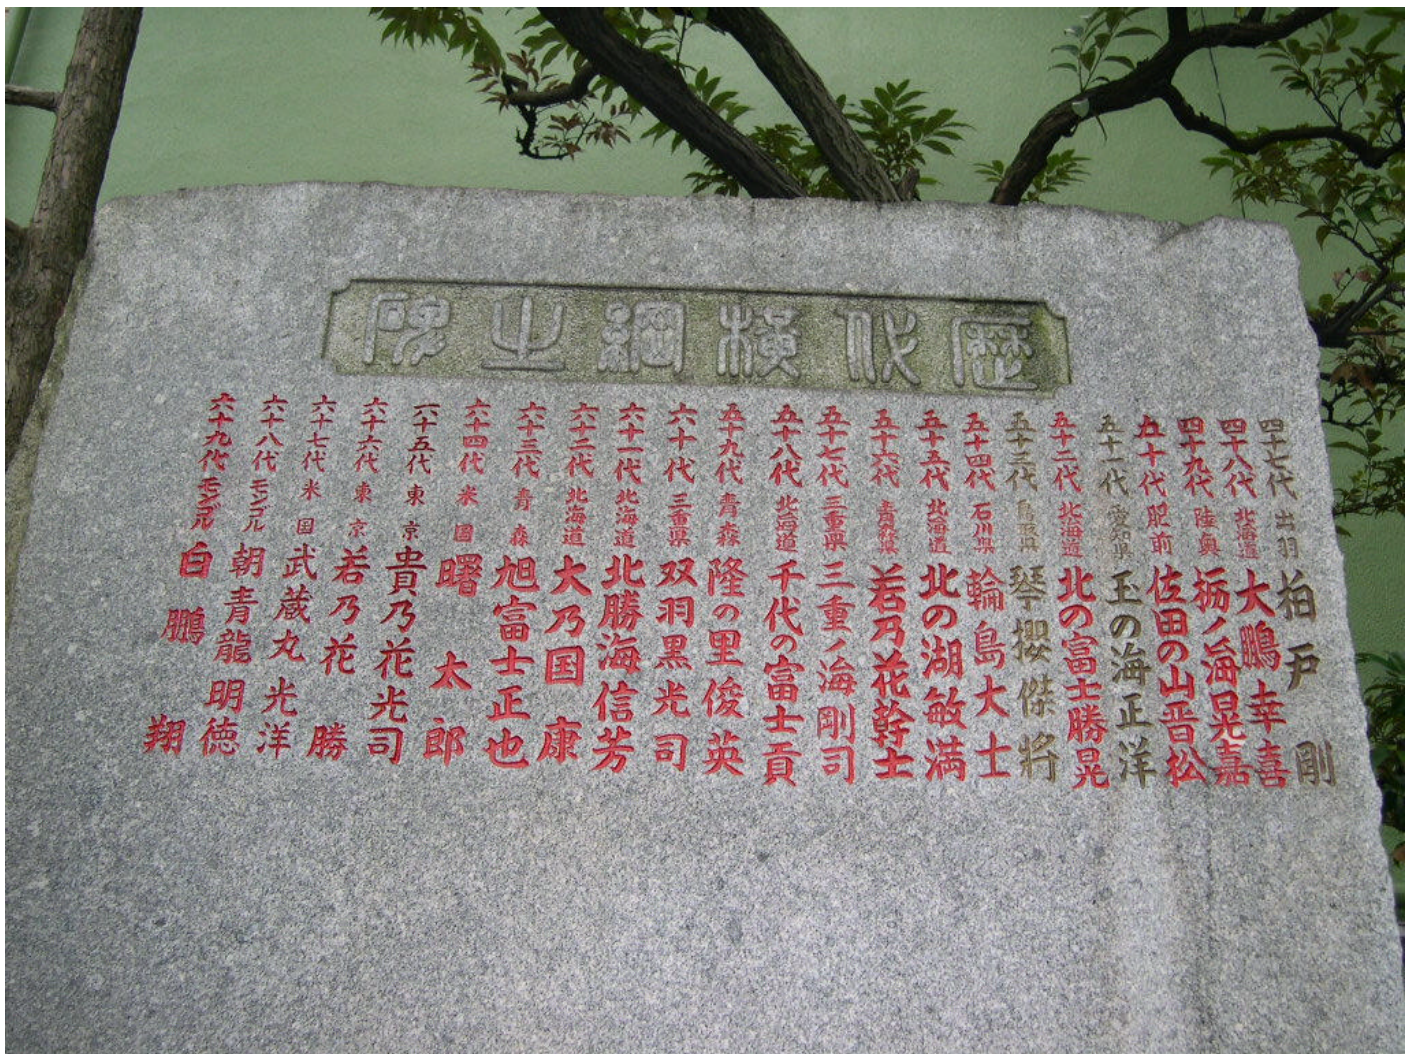 歴代横綱之碑
四十七代 出羽 柏戸 剛
四十八代 北海道 大鵬幸喜
四十九代 陸奥 栃ノ海晃嘉
五十代 肥前 佐田の山晋松
五十一代 愛知県 玉の海正洋
五十二代 北海道 北の富士勝晃
五十三代 鳥取県 琴櫻傑將
五十四代 石川県 輪島大士
五十五代 北海道 北の湖敏満
五十六代 青森県 若乃花幹士
五十七代 三重県 三重ノ海剛司
五十八代 北海道 千代の富士貢
五十九代 青森 隆の里俊英
六十代 三重県 双羽黒光司
六十一代 北海道 北勝海信芳
六十二代 北海道 大乃国 康
六十三代 青森 旭富士正也
六十四代 米国 曙 太郎
六十五代 東京 貴乃花光司
六十六代 東京 若乃花 勝
六十七代 米国 武蔵丸光洋
六十八代 モンゴル 朝青龍明徳
六十九代 モンゴル 白鵬 翔